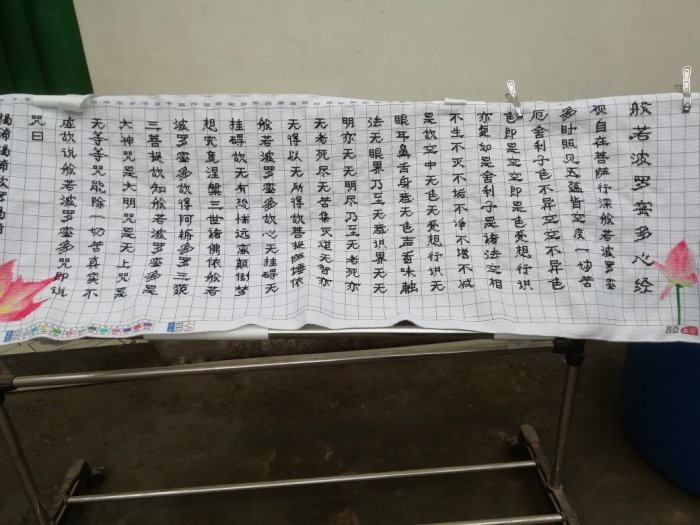 般若波罗蜜多心经
观自在菩萨行深般若波罗蜜
多时照见五蕴皆空度一切苦
厄舍利子色不异空空不异色
色即是空空即是色受想行识
亦复如是舍利子是诸法空相
不生不灭不垢不净不增不减
是故空中无色无受想行识无
眼耳鼻舌身意无色声香味触
法无眼界乃至无意识界无无
明亦无无明尽乃至无老死亦
无老死尽无苦集灭道无智亦
无得以无所得故菩提萨埵依
般若波罗蜜多故心无挂碍无
挂碍故无有恐怖远离颠倒梦
想究竟涅槃三世诸佛依般若
波罗蜜多故得阿耨多罗三藐
三菩提故知般若波罗蜜多是
大神咒是大明咒是无上咒是
无等等咒能除一切苦真实不
虚故说般若波罗蜜多咒即说
咒曰
揭谛揭谛波罗揭